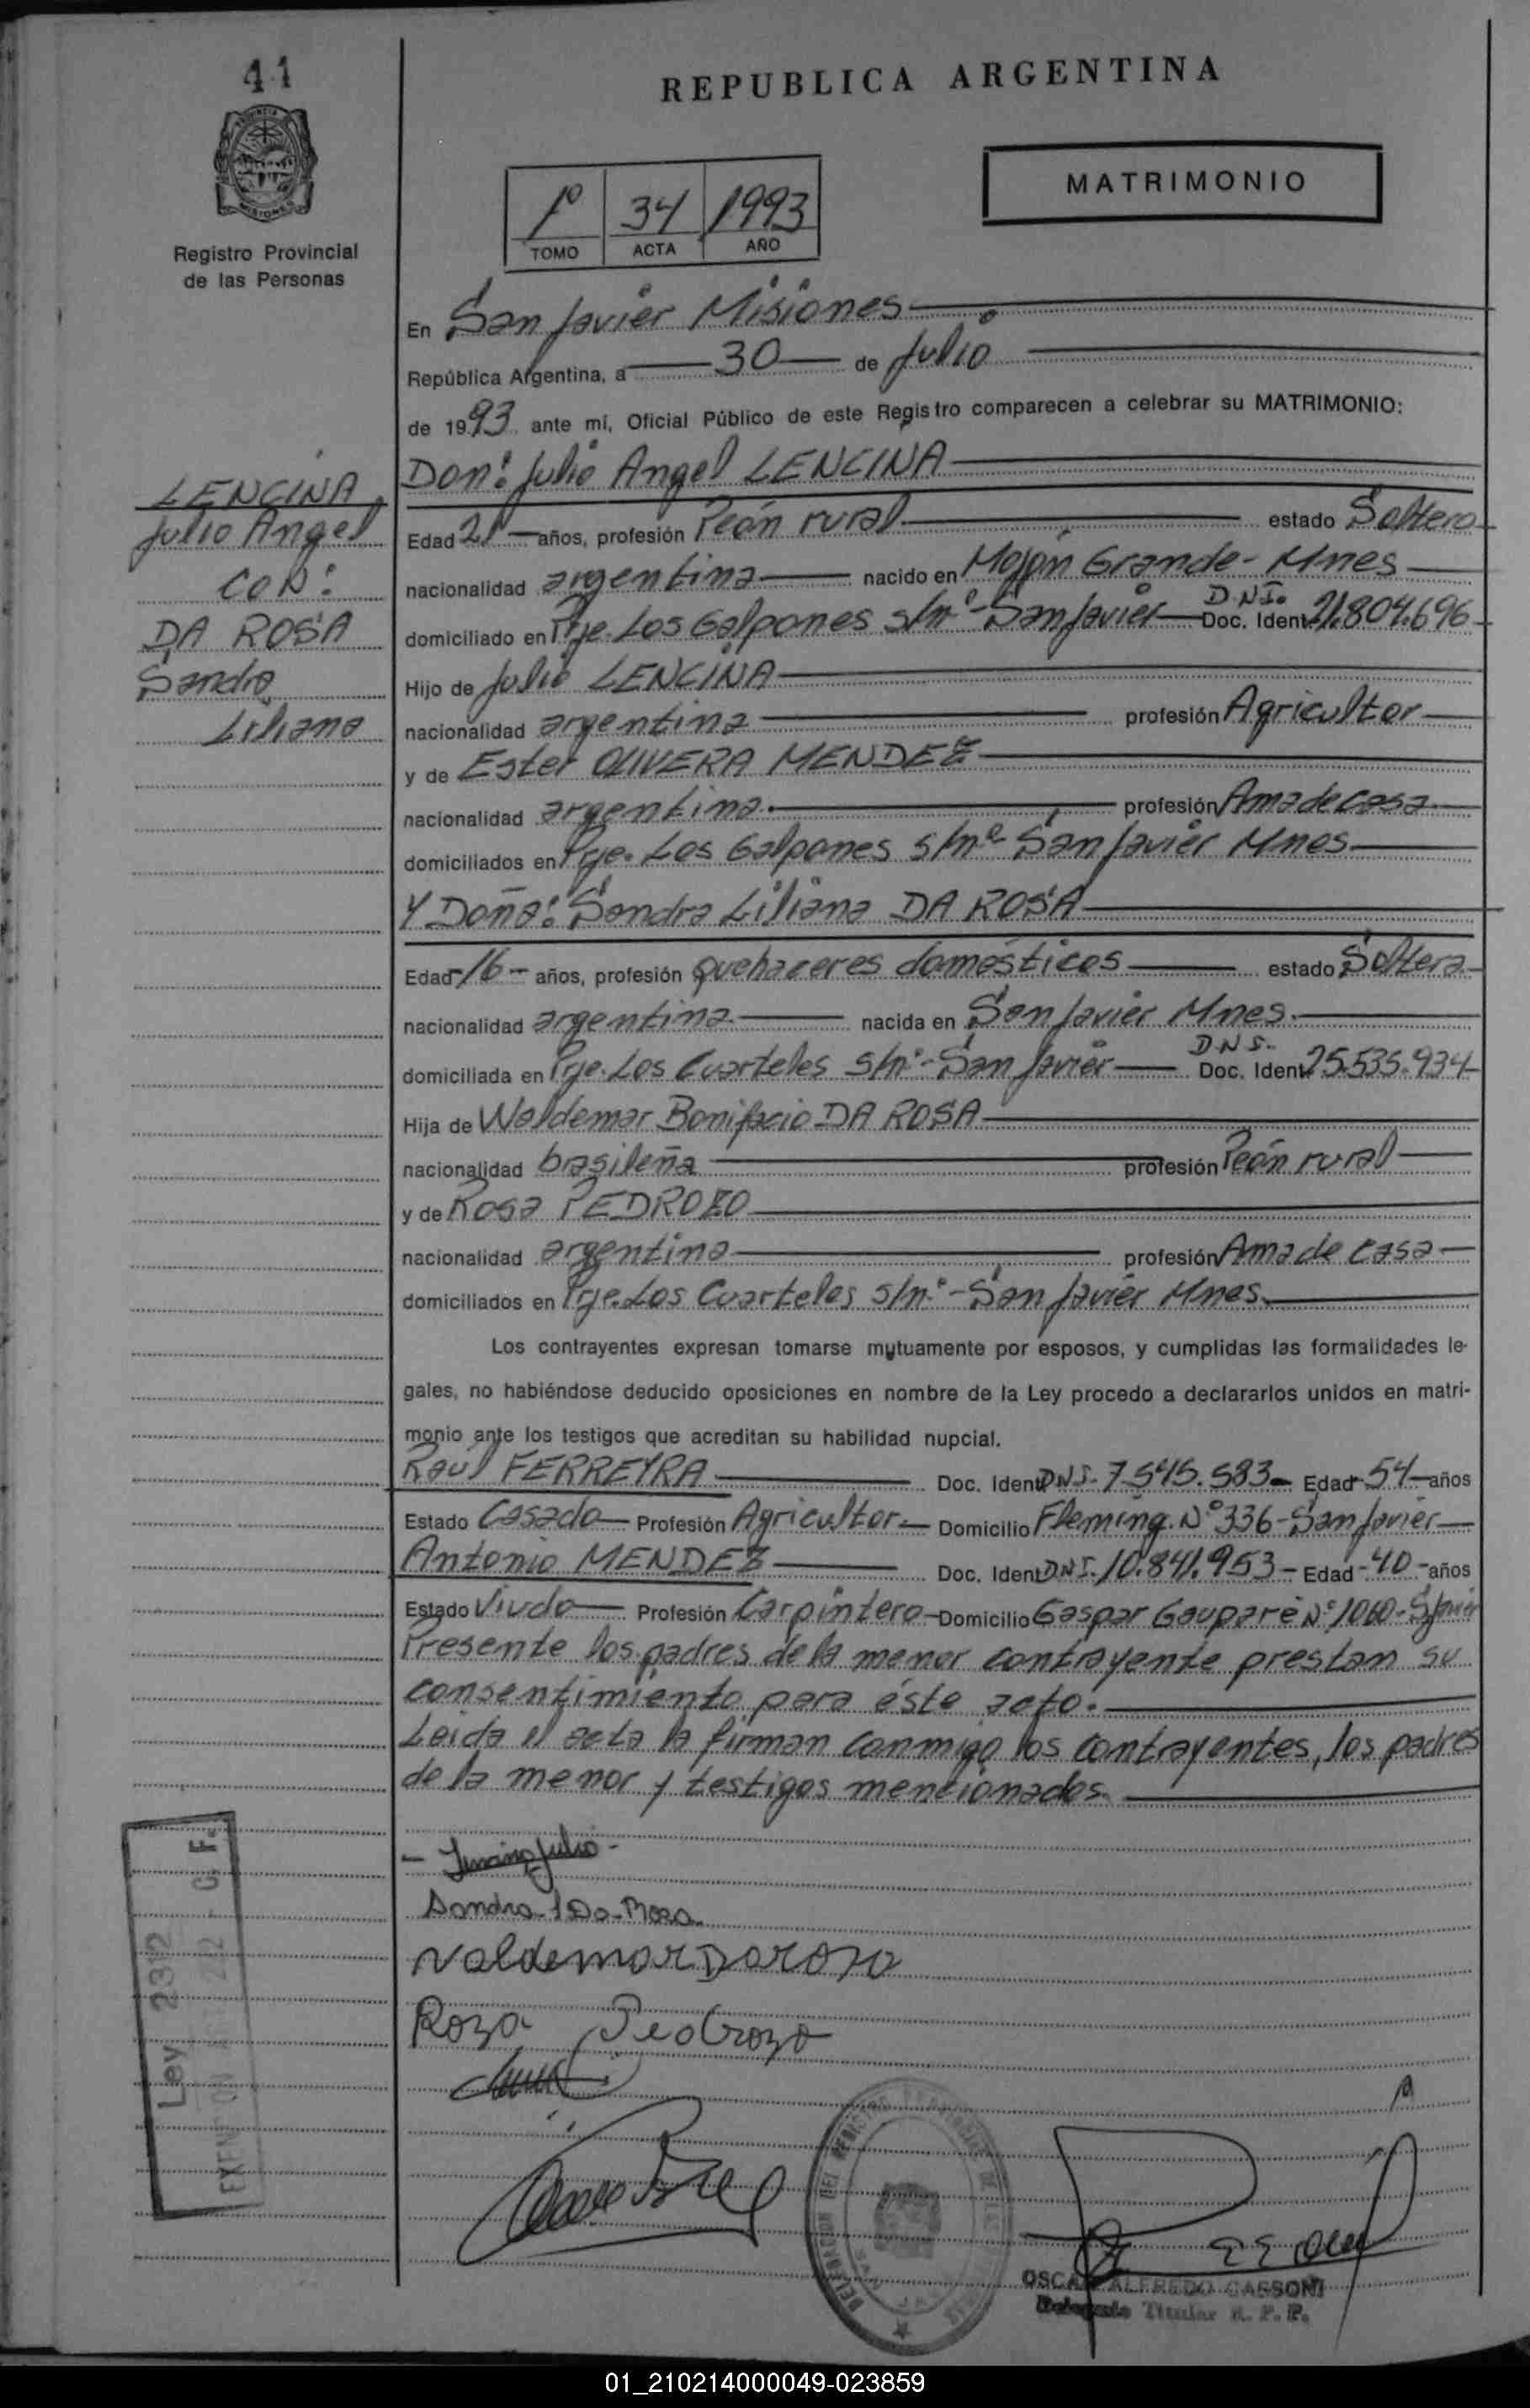 41
REPUBLICA ARGENTINA
MATRIMONIO
1º 34 1993
TOMO ACTA AÑO
MISIONES
Registro Provincial
de las Personas
En San Javier Misiones
República Argentina, a 30 de Julio
de 1993 ante mi, Oficial Público de este Registro comparecen a celebrar su MATRIMONIO:
LENCINA
Julio Angel
CON:
DA ROSA
Sandra
Liliana
Don: Julio Angel LENCINA
Edad 21 años, profesión Peón rural estado Soltero
nacionalidad argentina nacido en Mojón Grande - Mnes
domiciliado en Pje. Los Galpones s/nº - San Javier D.N.I. Doc. Ident. 21.804.696
Hijo de Julio LENCINA
nacionalidad argentina profesión Agricultor
y de Ester OLIVERA MENDEZ
nacionalidad argentina. profesión Ama de casa
domiciliados en Pje. Los Galpones s/nº - San Javier Mnes
Y Doña: Sandra Liliana DA ROSA
Edad -16- años, profesión quehaceres domésticos estado Soltera
nacionalidad argentina nacida en San Javier Mnes.
domiciliada en Pje. Los Cuarteles s/nº - San Javier D.N.I. Doc. Ident. 25.535.934
Hija de Waldemar Bonifacio DA ROSA
nacionalidad brasileña profesión Peón rural
y de Rosa PEDROZO
nacionalidad argentina profesión Ama de casa
domiciliados en Pje. Los Cuarteles s/nº - San Javier Mnes.
Los contrayentes expresan tomarse mutuamente por esposos, y cumplidas las formalidades le-
gales, no habiéndose deducido oposiciones en nombre de la Ley procedo a declararlos unidos en matri-
monio ante los testigos que acreditan su habilidad nupcial.
Raúl FERREYRA Doc. Ident D.N.I. 7.545.583 - Edad - 54 - años
Estado Casado Profesión Agricultor Domicilio Fleming Nº 336 - San Javier
Antonio MENDEZ Doc. Ident D.N.I. 10.841.953 - Edad - 40 - años
Estado Viudo Profesión Carpintero Domicilio Gaspar Gauparé Nº 1060 - S Javier
Presente los padres de la menor contrayente prestan su
consentimiento para éste acto.
Leida el acta la firman conmigo los contrayentes, los padres
de la menor y testigos mencionados.
Julio
Sandra L Da Rosa
Valdemar Da rosa
Roza Pedrozo
Ley 2312 - G. F.
OSCAR ALFREDO GASSONI
Delegado Titular R. P. P.
01_210214000049-023859